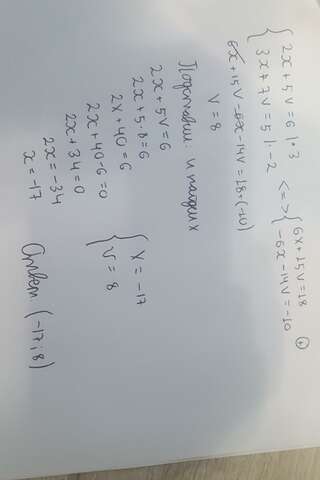 { 2x + 5v = 6 | · 3
{ 3x + 7v = 5 | · -2
<=> { 6x + 15v = 18
{ -6x - 14v = -10
+
6x + 15v - 6x - 14v = 18 + (-10)
v = 8
Подставим и найдем x
2x + 5v = 6
2x + 5·8 = 6
2x + 40 = 6
2x + 40 - 6 = 0
2x + 34 = 0
2x = -34
x = -17
{ x = -17
{ v = 8
Ответ: (-17; 8)